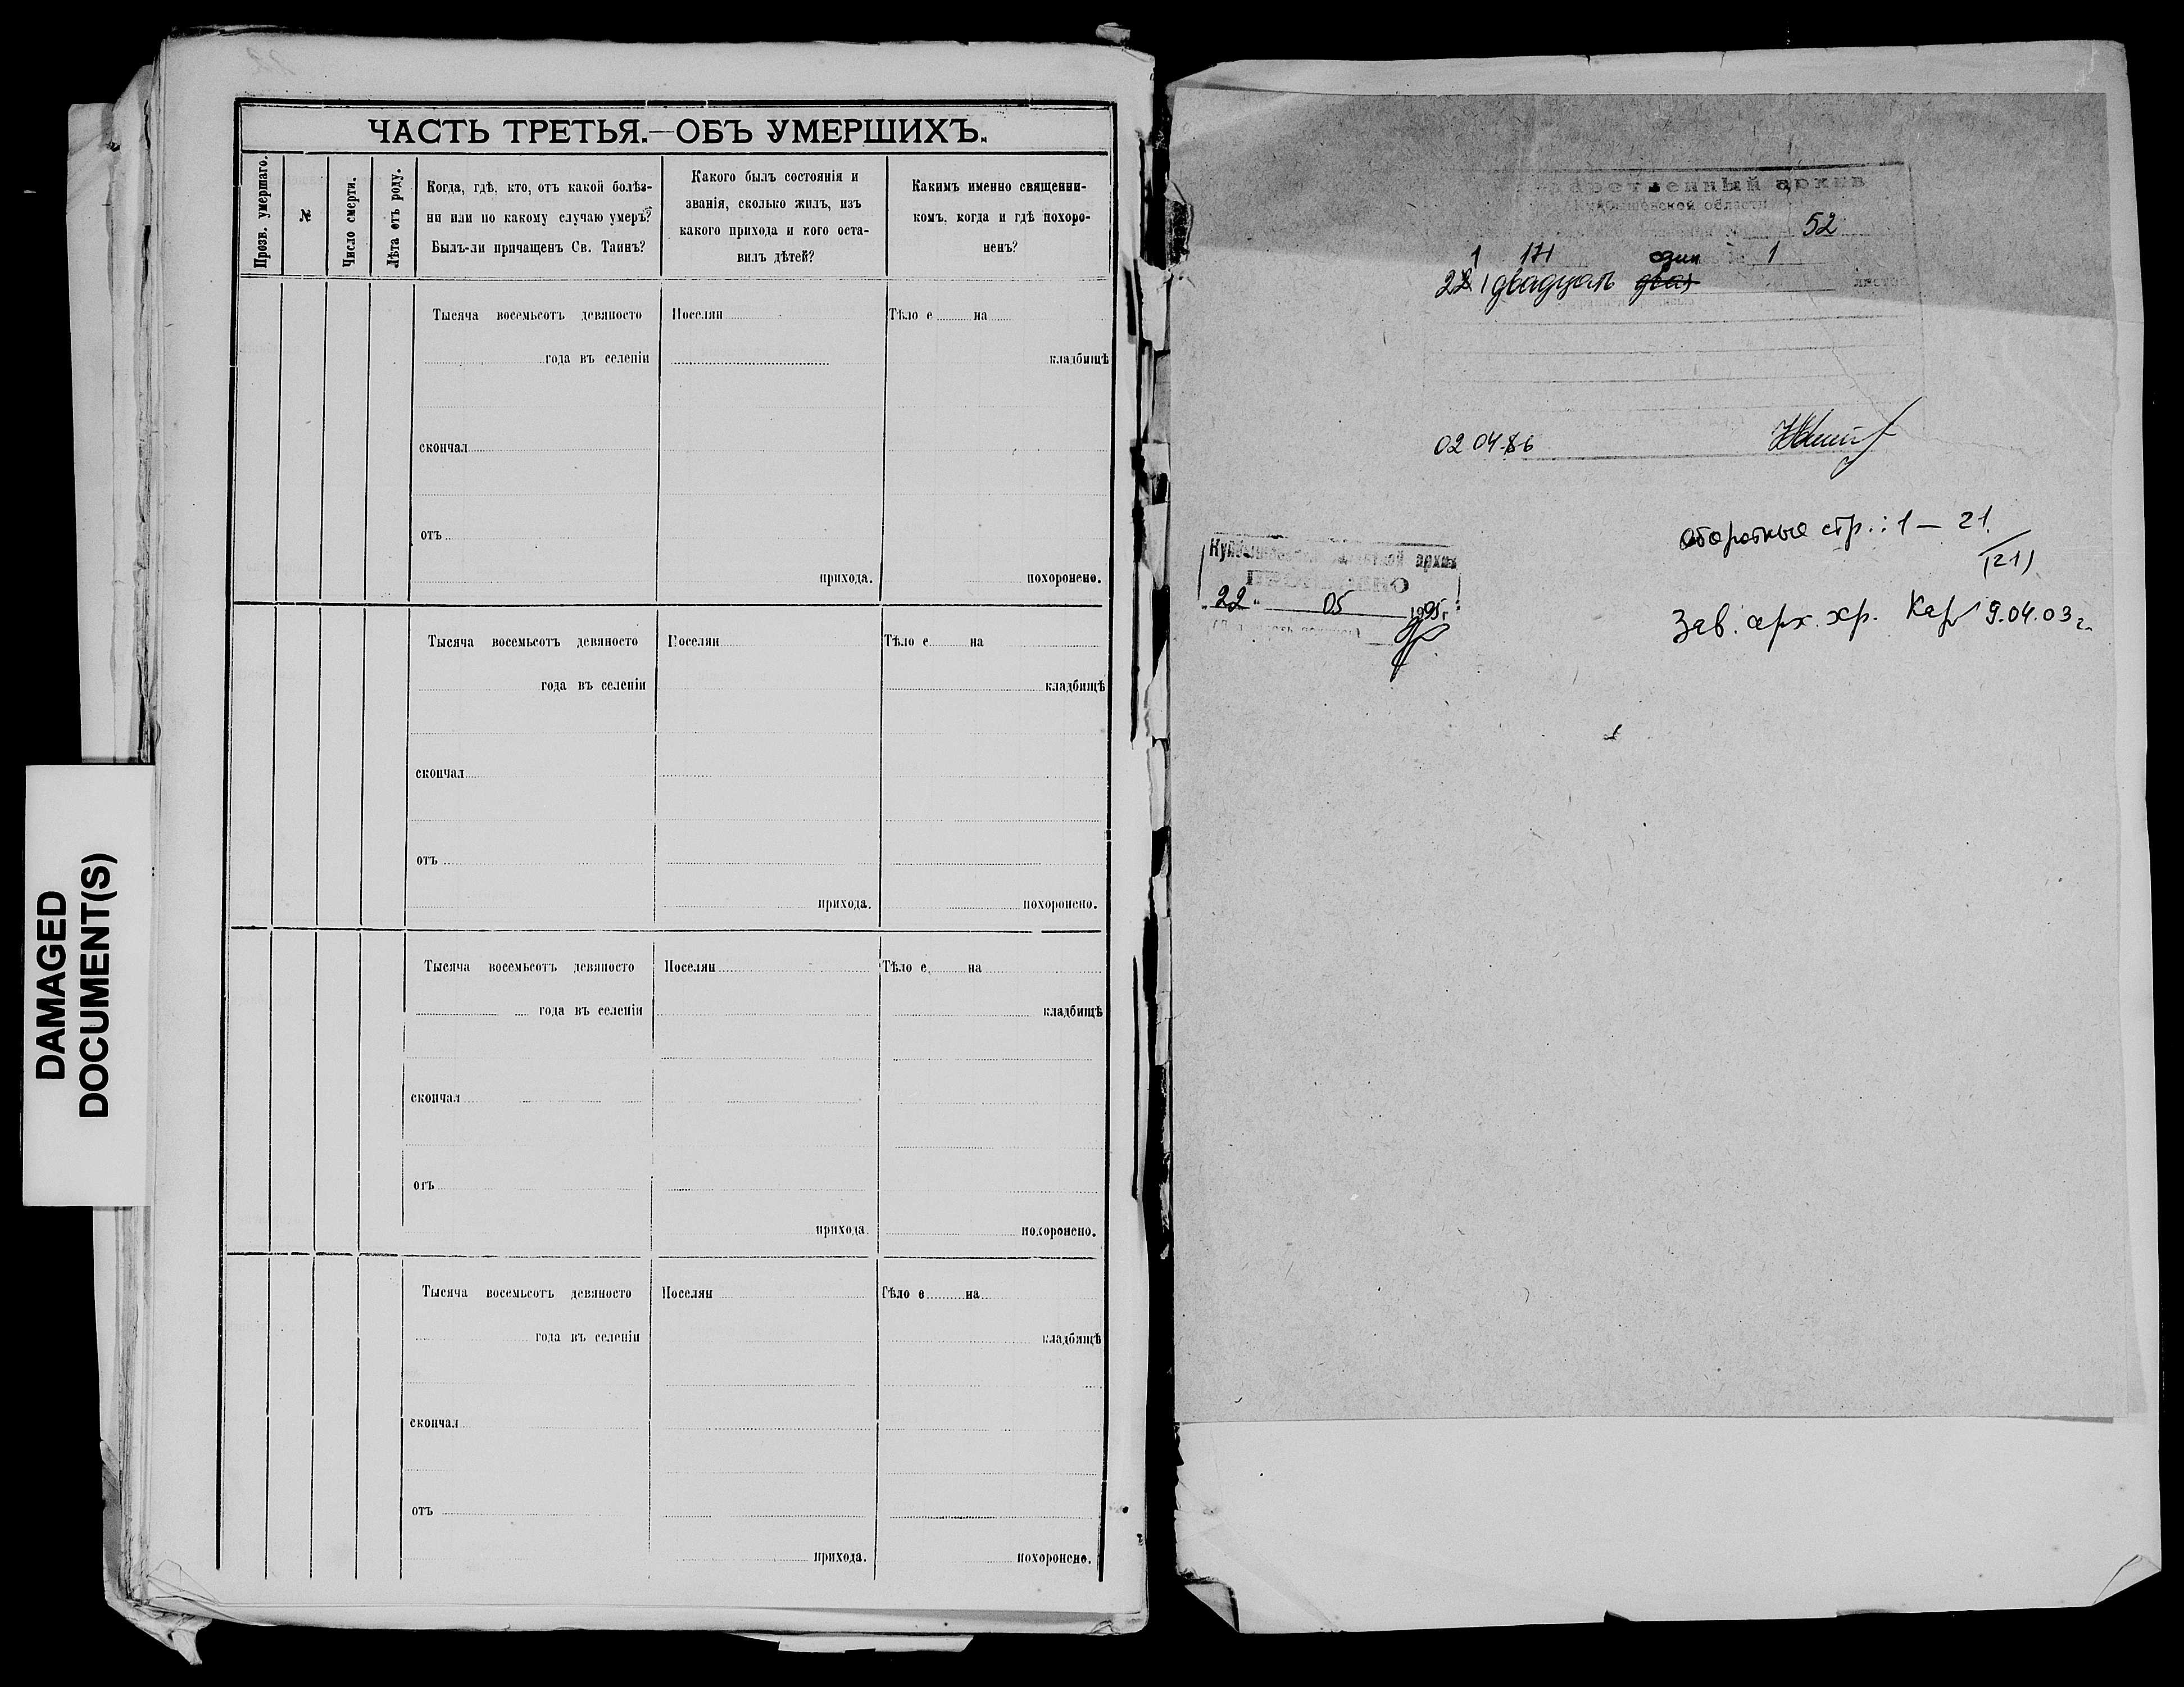 ЧАСТЬ ТРЕТЬЯ.—ОБЪ УМЕРШИХЪ.
Прозв. умершаго.
№
Число смерти.
Лѣта отъ роду.
Когда, гдѣ, кто, отъ какой болѣз-
ни или по какому случаю умеръ?
Былъ-ли причащенъ Св. Таинъ?
Какого былъ состоянія и
званія, сколько жилъ, изъ
какого прихода и кого оста-
вилъ дѣтей?
Какимъ именно священни-
комъ, когда и гдѣ похоро-
ненъ?
Тысяча восемьсотъ девяносто
года въ селеніи
скончал
отъ
Поселян
прихода.
Тѣло е на
кладбищѣ
похоронено.
Тысяча восемьсотъ девяносто
года въ селеніи
скончал
отъ
Поселян
прихода.
Тѣло е на
кладбищѣ
похоронено.
Тысяча восемьсотъ девяносто
года въ селеніи
скончал
отъ
Поселян
прихода.
Тѣло е на
кладбищѣ
похоронено.
Тысяча восемьсотъ девяносто
года въ селеніи
скончал
отъ
Поселян
прихода.
Тѣло е на
кладбищѣ
похоронено.
DAMAGED
DOCUMENT(S)
архив
Куйбышевской области
52
1 171 один 1
22 (двадцать два)
02.04.86
Оборотные стр.: 1 — 21
(21)
архив
22 05 1995 г.
Зав. арх. хр. 9.04.03 г.